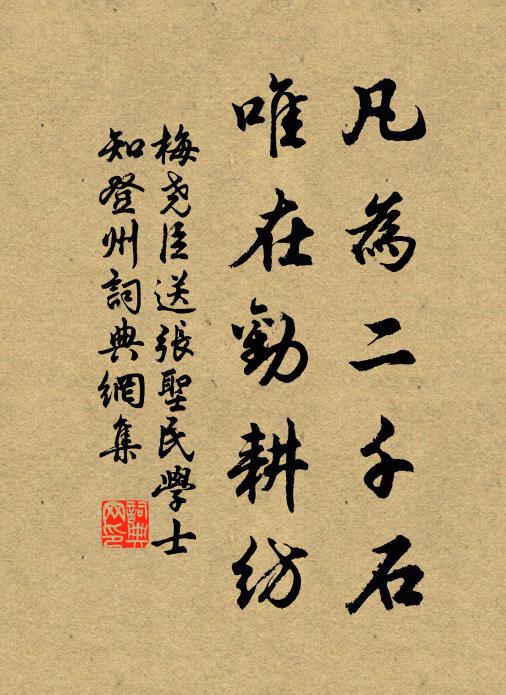 凡為二千石
唯在勸耕紡
梅尧臣送張聖民學士
知登州詞典網集
詞典
网印